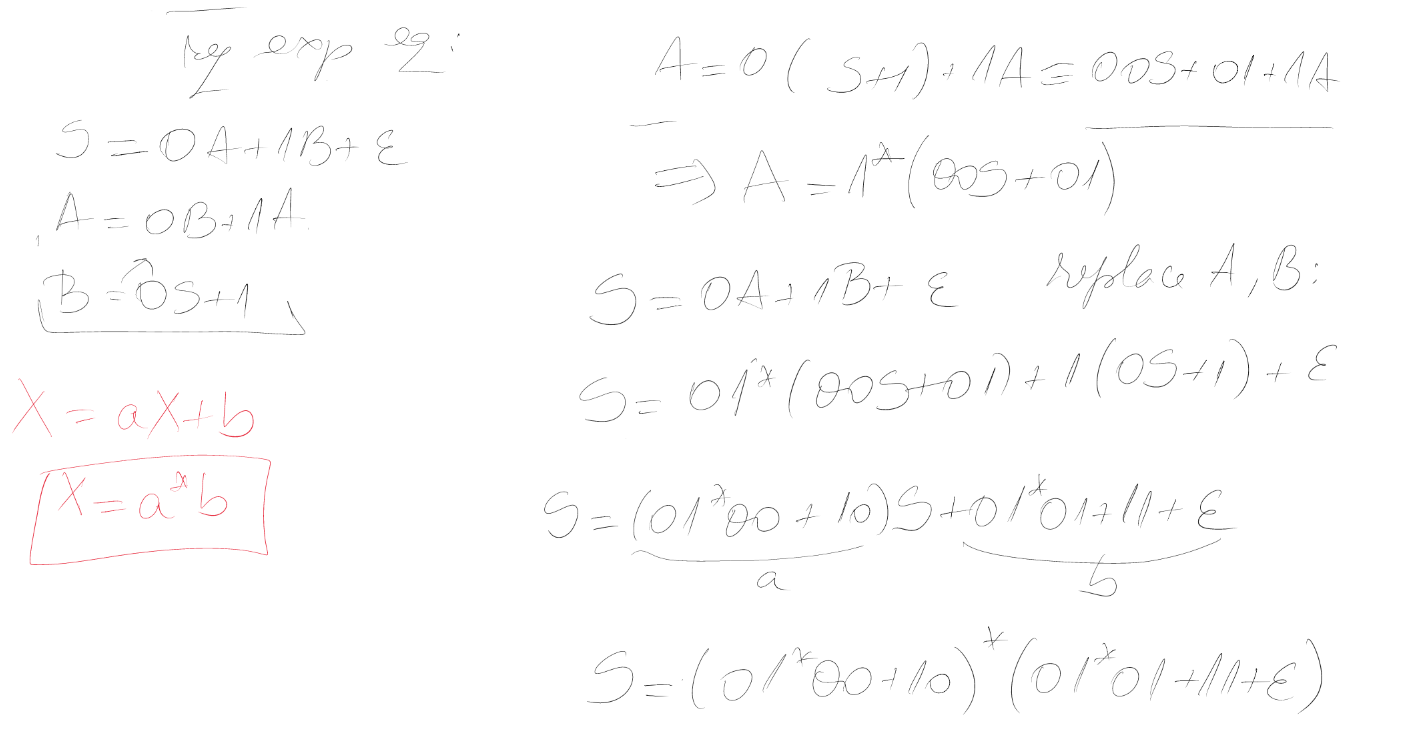 reg exp eq:
S = 0A+1B+ε
A = 0B+1A
B = 0S+1
X = aX+b
X = a*b
A = 0( S+1)+1A = 00S+01+1A
⇒ A = 1*(00S+01)
S = 0A+1B+ ε replace A, B:
S = 01*(00S+01)+1(0S+1)+ε
S = (01*00+10)S+01*01+11+ε
a b
S = (01*00+10)*(01*01+11+ε)